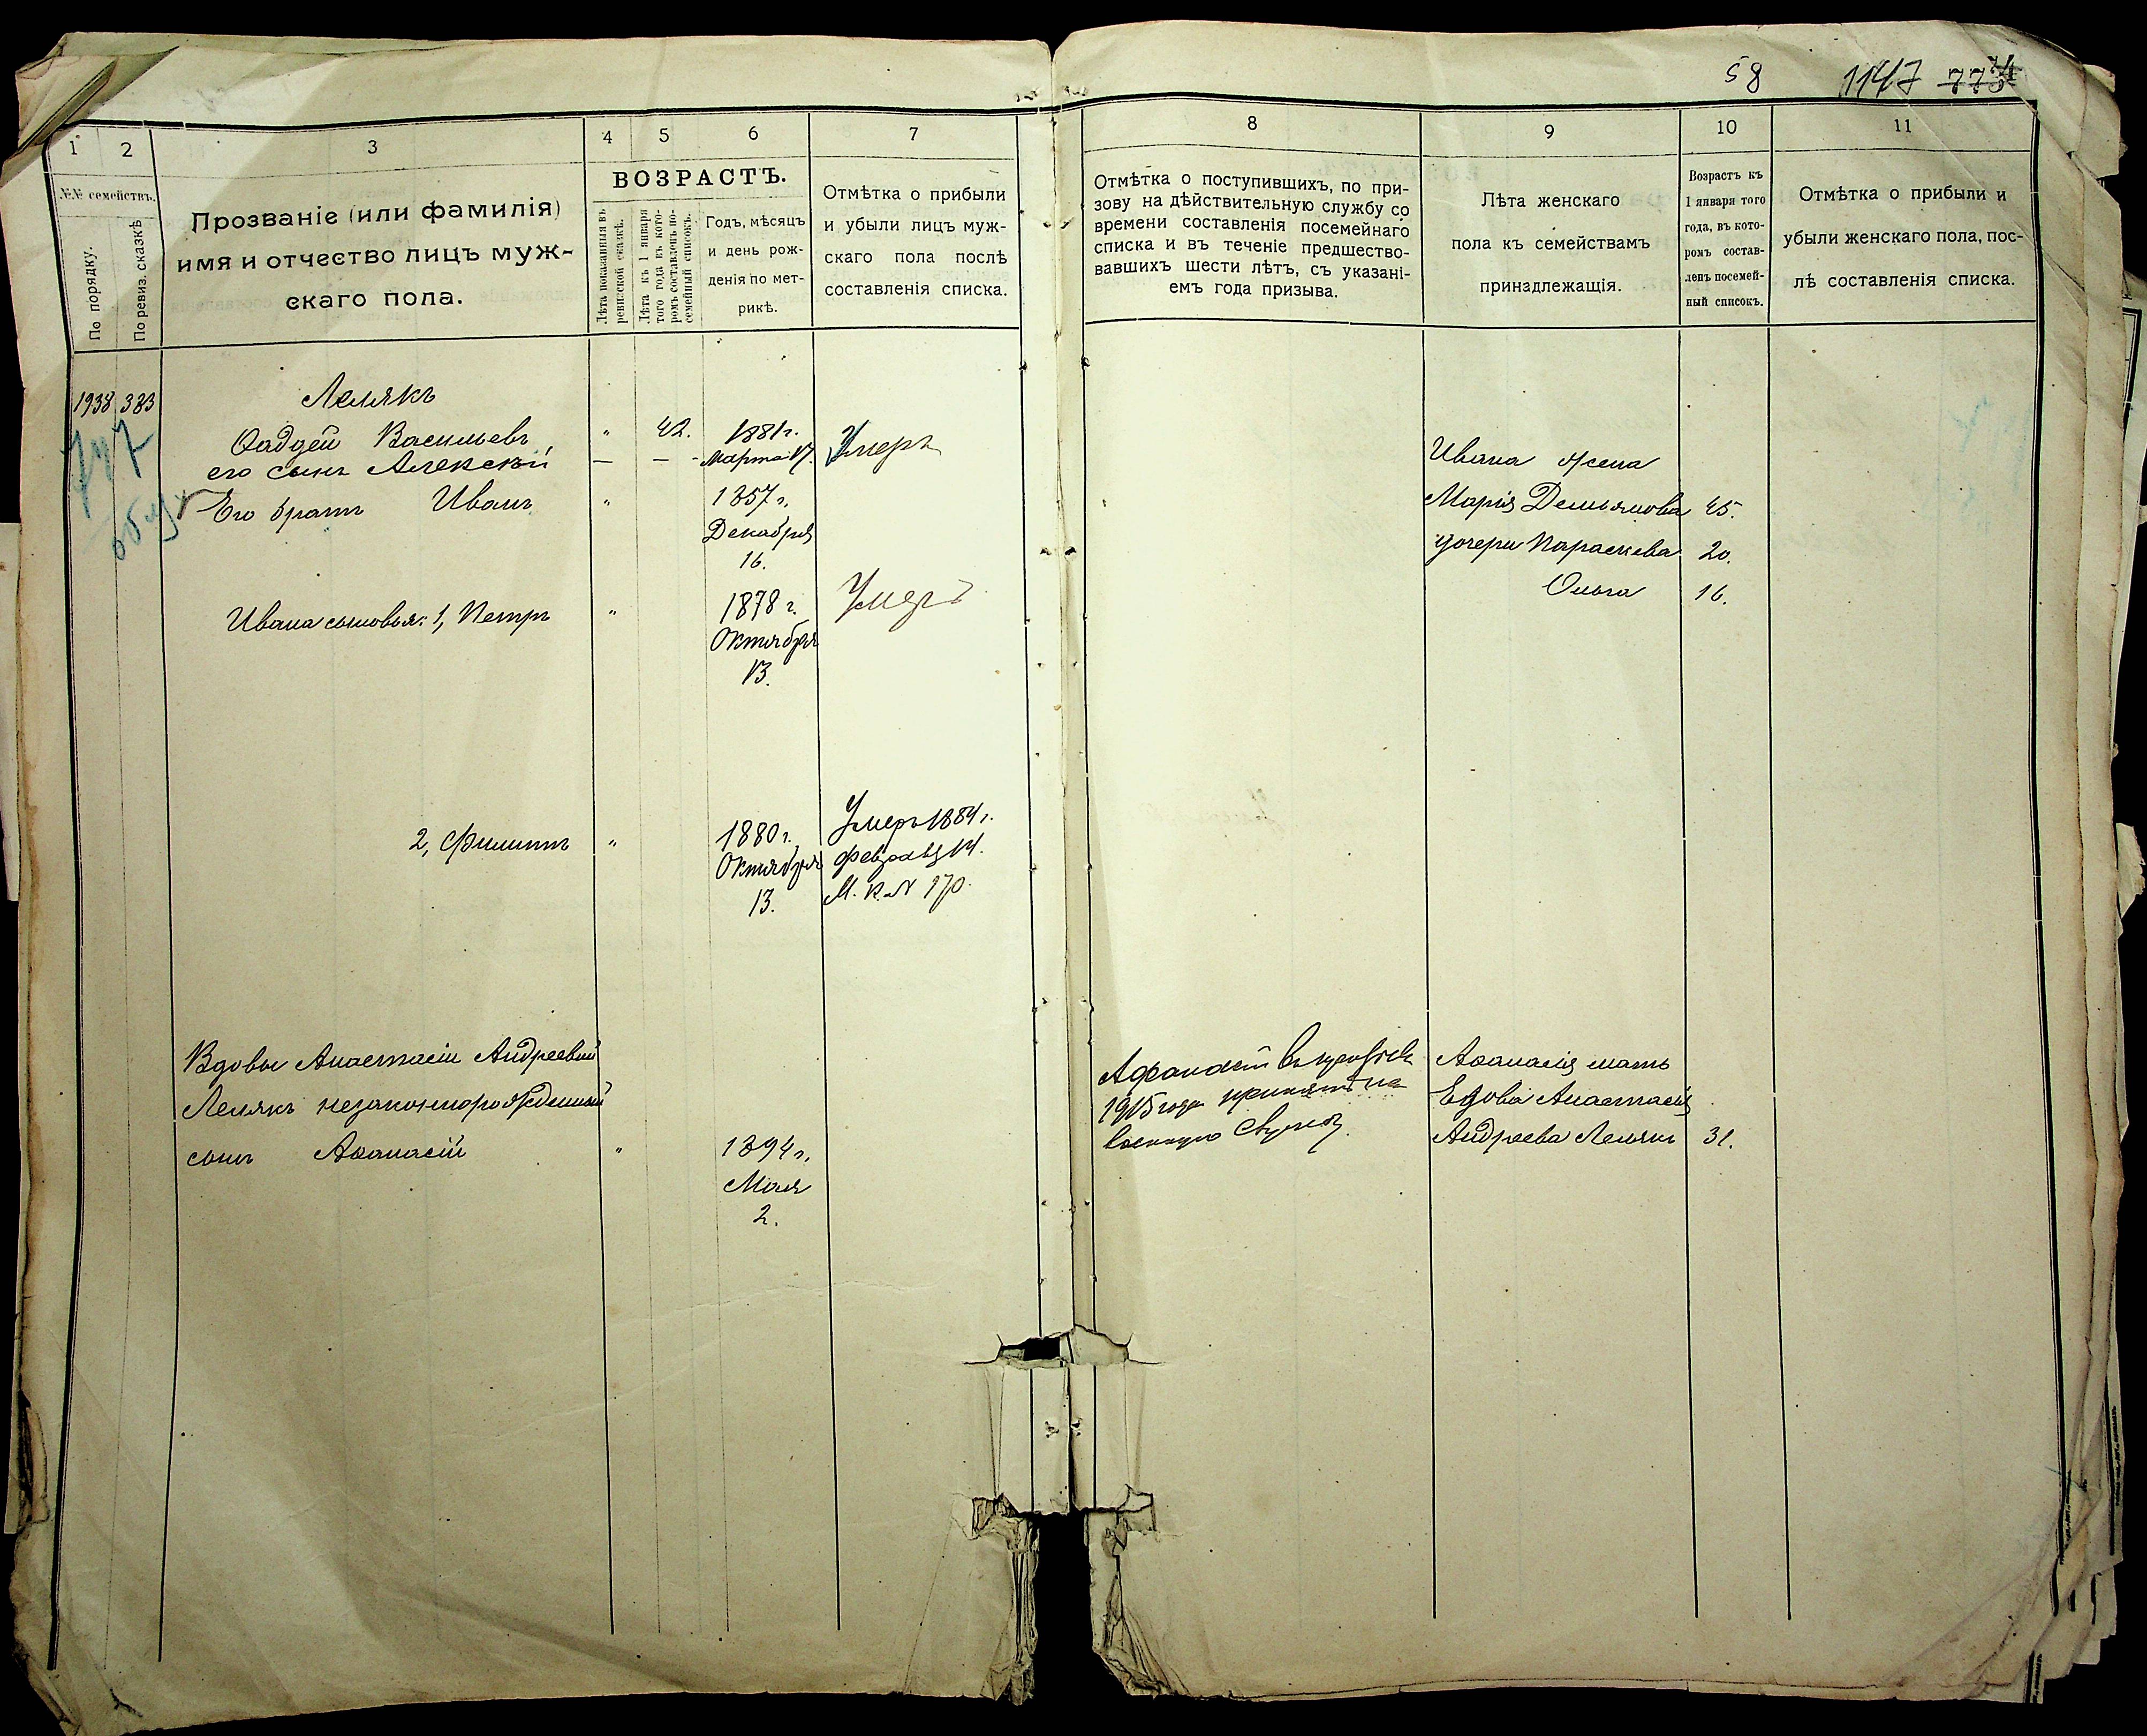 58 1147 774
1 2 3 4 5 6 7
№№ семействъ.
По порядку.
По ревиз. сказкѣ
Прозваніе (или фамилія)
имя и отчество лицъ муж-
скаго пола.
ВОЗРАСТЪ.
Лѣта показанныя въ
ревизской сказкѣ.
Лѣта къ 1 января
того года въ кото-
ромъ составленъ по-
семейный списокъ.
Годъ, мѣсяцъ
и день рож-
денія по мет-
рикѣ.
Отмѣтка о прибыли
и убыли лицъ муж-
скаго пола послѣ
составленія списка.
8 9 10 11
Отмѣтка о поступившихъ, по при-
зову на дѣйствительную службу со
времени составленія посемейнаго
списка и въ теченіе предшество-
вавшихъ шести лѣтъ, съ указані-
емъ года призыва.
Лѣта женскаго
пола къ семействамъ
принадлежащія.
Возрастъ къ
1 января того
года, въ кото-
ромъ состав-
ленъ посемей-
ный списокъ.
Отмѣтка о прибыли и
убыли женскаго пола, пос-
лѣ составленія списка.
1938 383 Лелякъ
Ѳаддей Васильевъ " 42. 1881 г.
его сынъ Алексѣй — — - Марта 17. Умеръ
Его братъ Иванъ " 1857 г.
Декабря
16.
Ивана сыновья: 1, Петръ " 1878 г. Умеръ
Октября
13.
2, Филиппъ " 1880 г. Умеръ 1884 г.
Октября Февраля 14.
13. М. К. № 170.
Вдовы Анастасіи Андреевой
Лелякъ незаконнорожденный
сынъ Аѳанасій " 1894 г.
Мая
2.
Ивана жена
Марія Демьянова 45.
дочери Параскева 20.
Ольга 16.
Афанасій въ
1915 году принятъ на
военную службу.
Аѳанасія мать
Вдова Анастасія
Андреева Лелякъ 31.